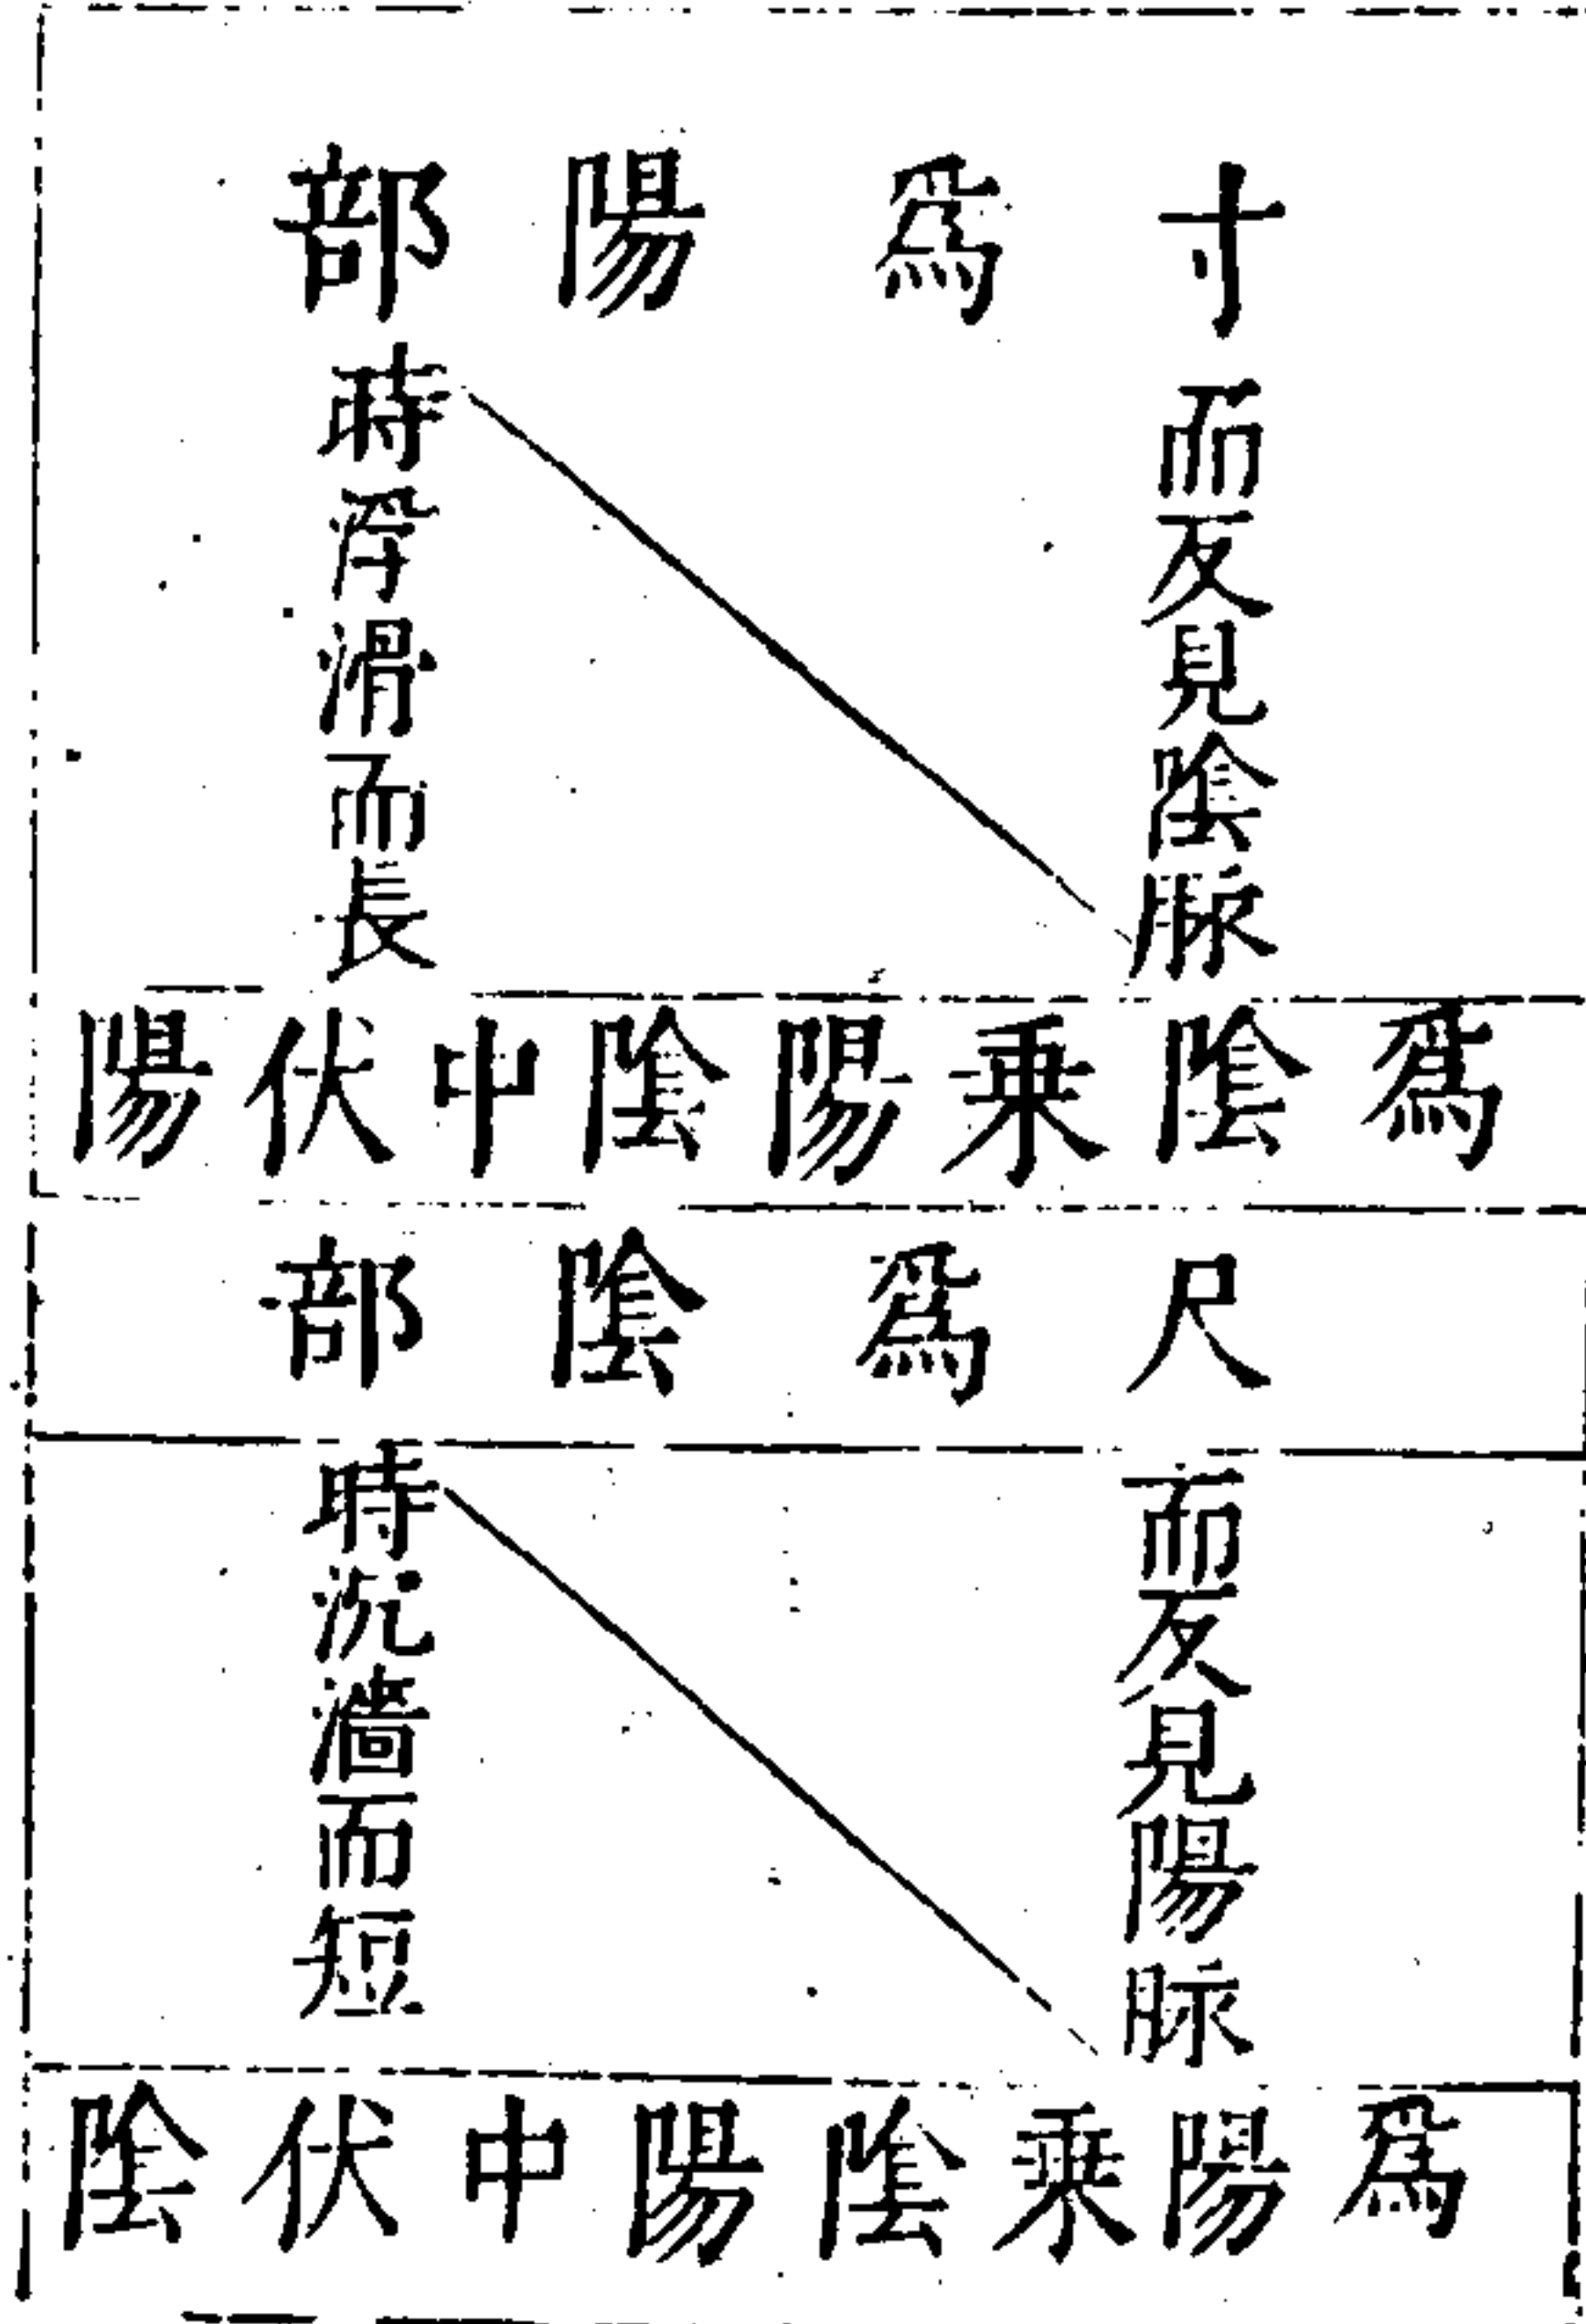 寸爲陽部
而反見陰脉
時浮滑而長
爲陰乗陽陰中伏陽
尺爲陰部
而反見陽脉
時沉濇而短
爲陽乗陰陽中伏陰